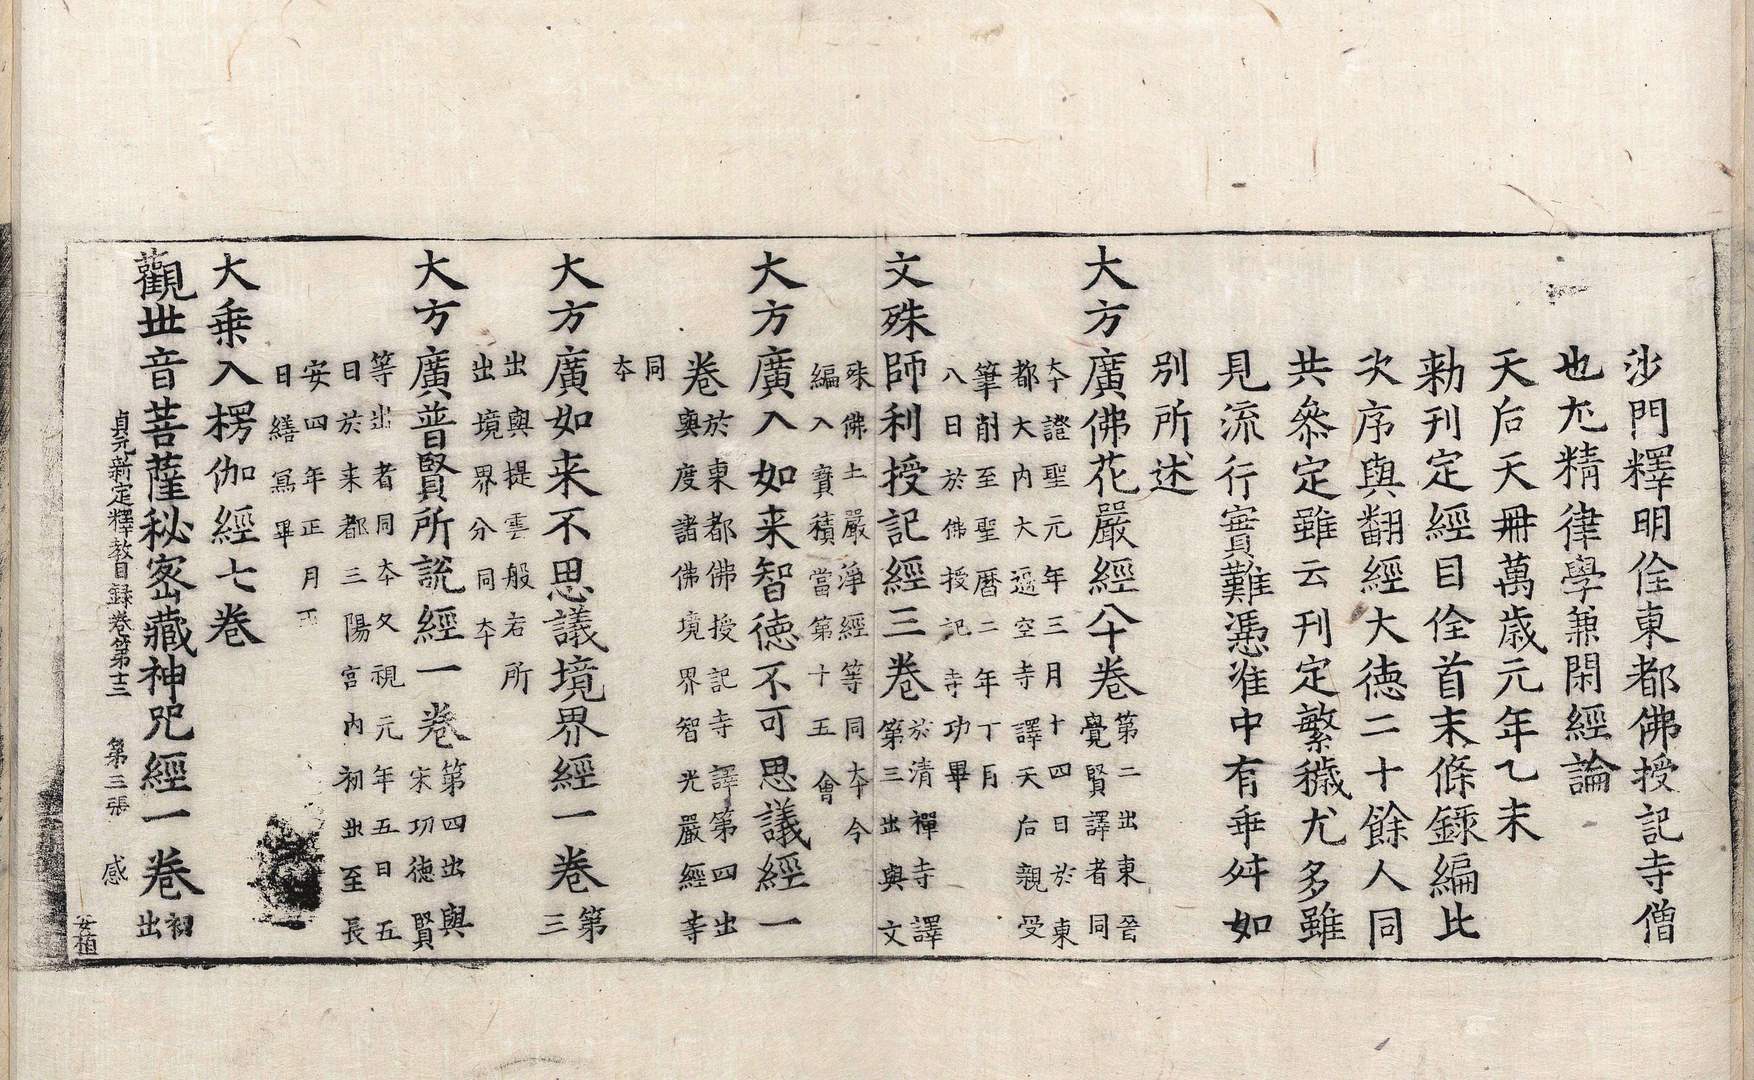 沙門釋明佺東都佛授記寺僧
也尤精律學兼閑經論
天后天冊萬歲元年乙未
勑刊定經目佺首末條錄編比
次序與翻經大德二十餘人同
共叅定雖云刊定繁穢尤多雖
見流行寔難憑准中有乖舛如
別所述
大方廣佛花嚴經八十卷 第二出東晉
覺賢譯者同
夲證聖元年三月十四日於東
都大內大遍空寺譯天后親受
筆削至聖曆二年丁月
八日於佛授記寺功畢
文殊師利授記經三卷 於清禪寺譯
第三出與文
殊佛土嚴淨經等同夲今
編入寶積當第十五會
大方廣入如来智德不可思議經一
卷 於東都佛授記寺譯第四出
與度諸佛境界智光嚴經等
同
夲
大方廣如来不思議境界經一卷 第
三
出與提雲般若所
出境界分同夲
大方廣普賢所說經一卷 第四出與
宋功德賢
等出者同夲久視元年五日五
日於来都三陽宮內初出至長
安四年正月
日繕寫畢
大乗入楞伽經七卷
觀世音菩薩秘密藏神咒經一卷 初
出
貞元新定釋教目録卷第十三 第三張 感